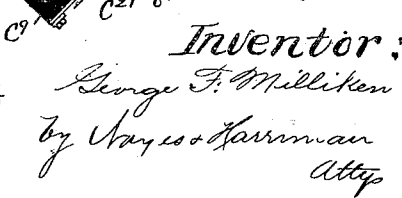 C9 C21
Inventor:
George F. Milliken
by Noyes & Harriman
Attys